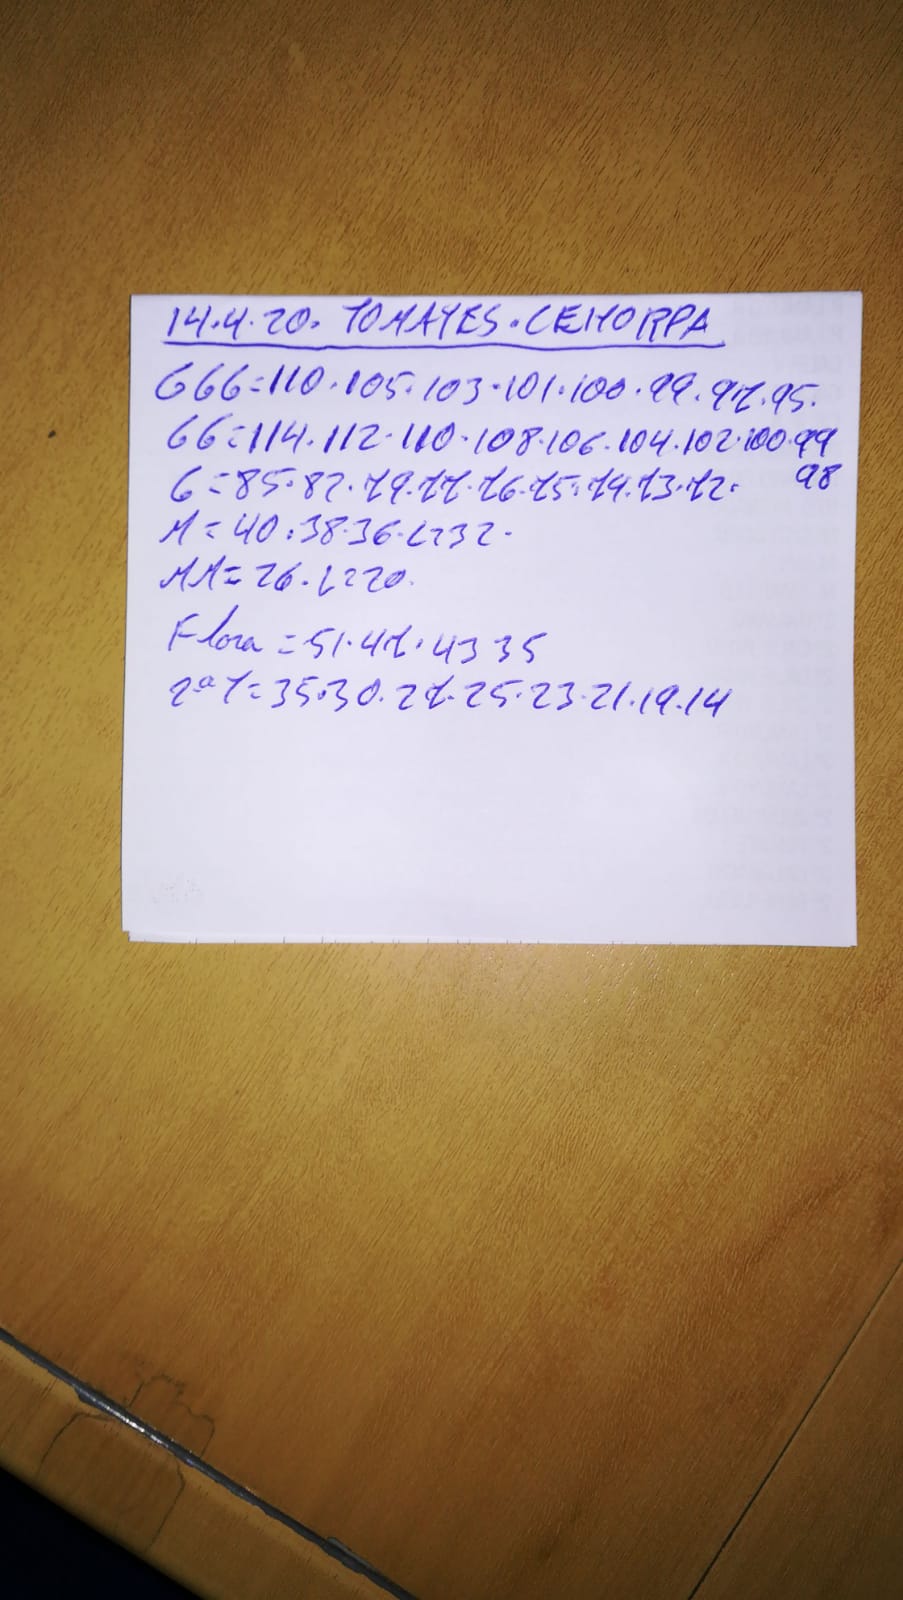 14.4.20. TOMATES. CEHORPA
GGG=110.105.103.101.100.99.97.95.
GG=114.112.110.108.106.104.102.100.99
98
G=85.82.79.77.76.75.74.73.72.
M=40.38.36.L232.
MM=26.L220.
Flora=51.47.43 35
2ªT=35.30.27.25.23.21.19.14